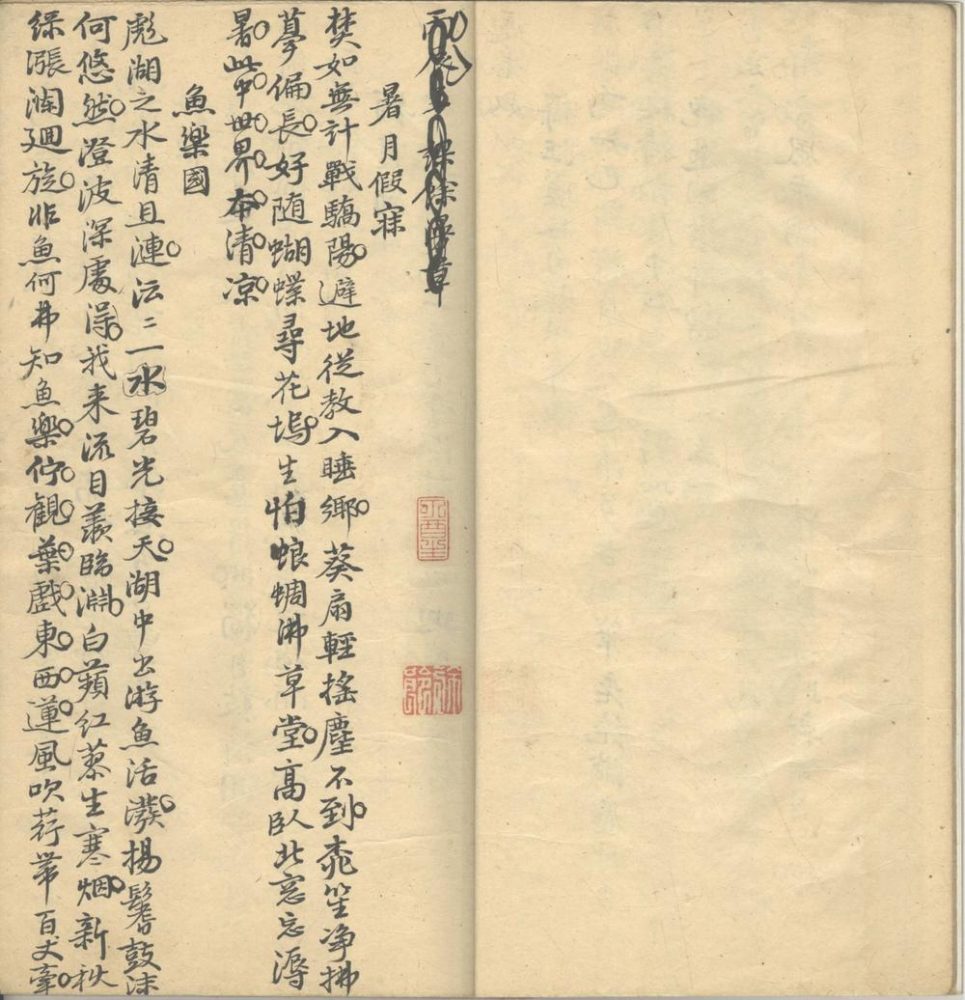 暑月假寐
焚如無計戰驕陽避地從教入睡鄉葵扇輕搖塵不到桃笙净拂
夢偏長好随蝴蝶尋花塢生怕蜋蜩沸草堂高臥北窓忘溽
暑此中世界本清凉
魚樂國
彪湖之水清且漣沄二一水碧光接天湖中出游魚活潑揚鬐鼓沫
何悠然澄波深處得我来流目羡臨淵白蘋紅蓼生寒烟新秋
緑漲瀾廻旋非魚何弗知魚樂佇觀葉戲東西蓮風吹荇帯百丈牽